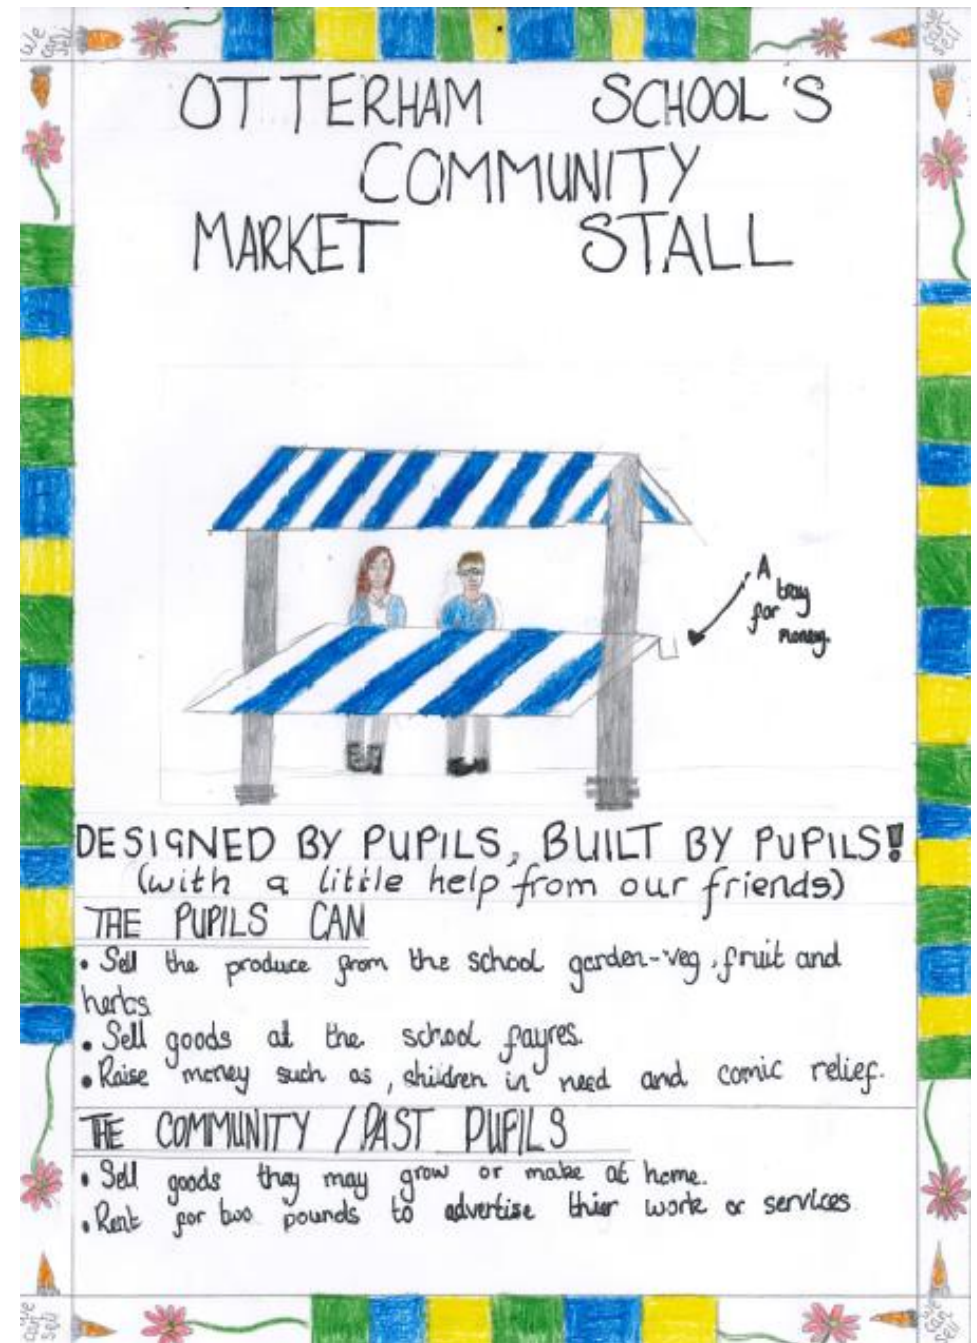 We can sell
We can sell
OTTERHAM SCHOOL'S
COMMUNITY
MARKET STALL
A
tray
for
money.
DESIGNED BY PUPILS, BUILT BY PUPILS!
(with a little help from our friends)
THE PUPILS CAN
• Sell the produce from the school garden-veg, fruit and
herbs
• Sell goods at the school fayres.
• Raise money such as, children in need and comic relief.
THE COMMUNITY / PAST PUPILS
• Sell goods they may grow or make at home.
• Rent for two pounds to advertise thier work or services
We can sell
We can sell